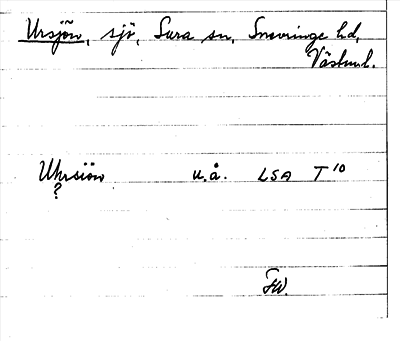 Ursjön, sjö, Sura sn, Snevringe hd,
Västml.
Uhrsiön u.å. LSA T¹⁰
?
FW.